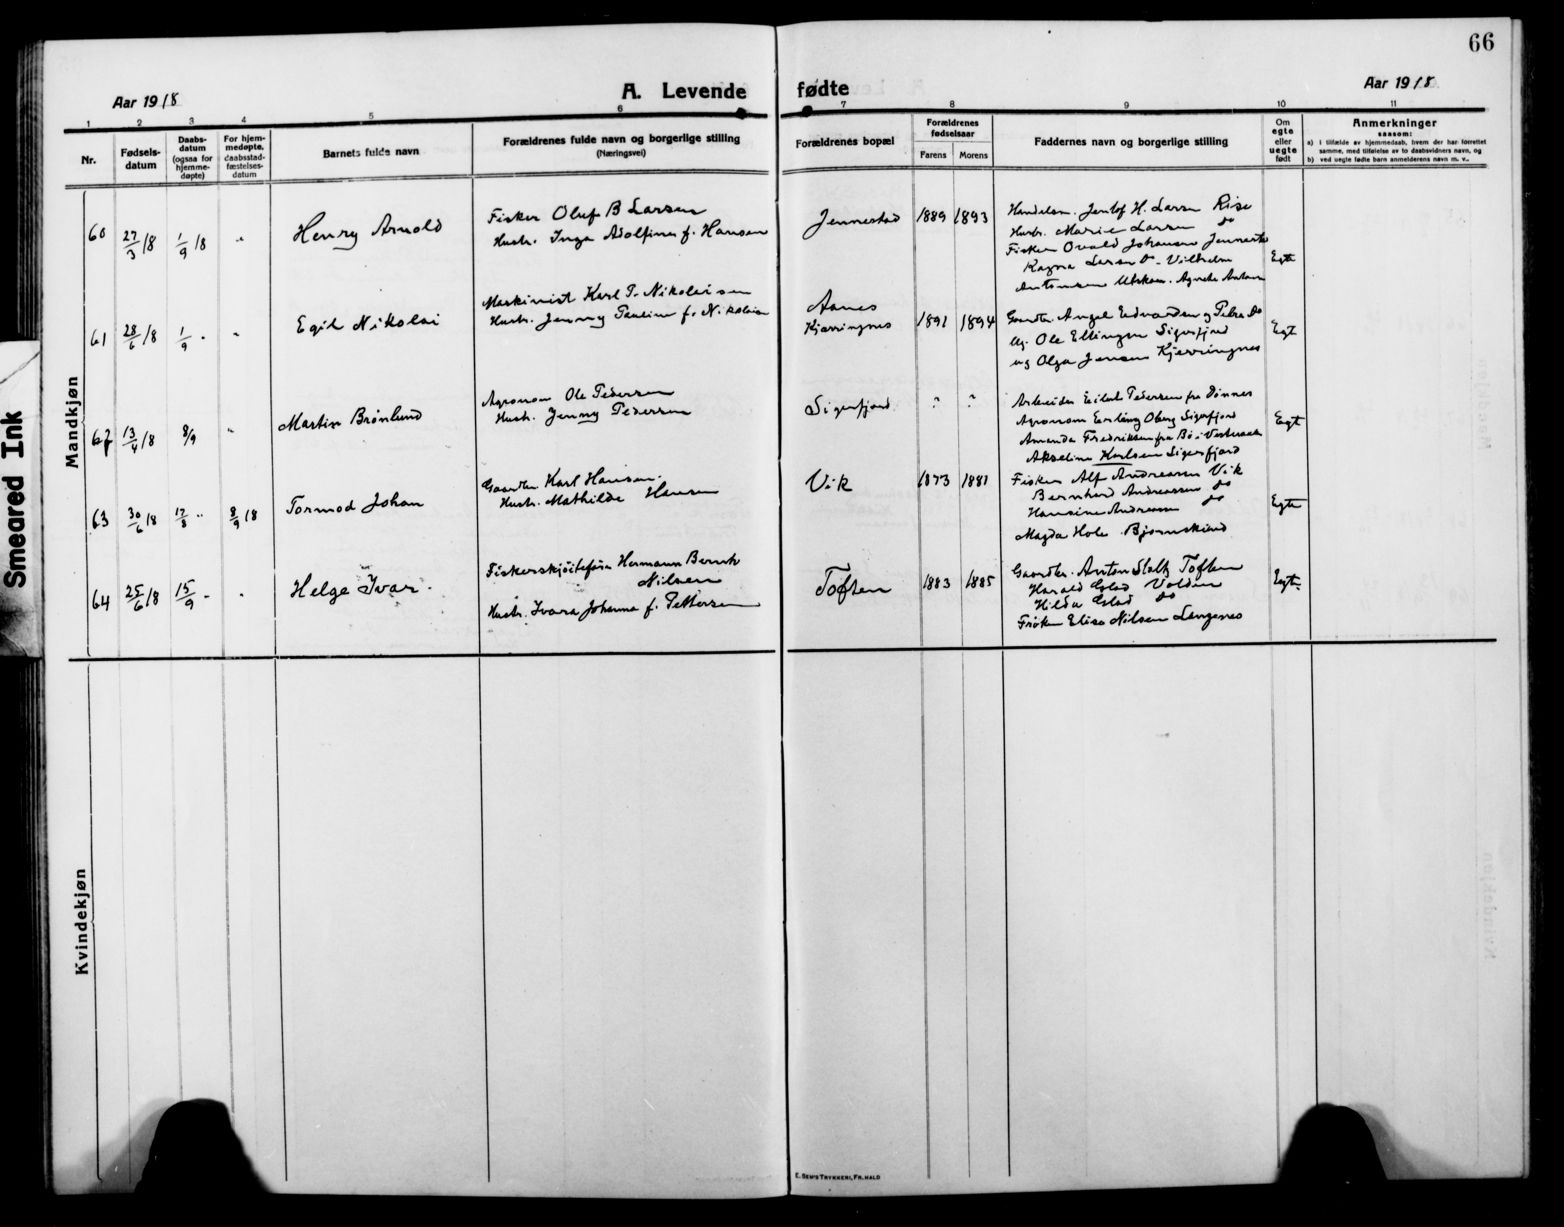 66
Aar 1918
A. Levende fødte
Aar 1918
1 2 3 4 5 6 7 8 9 10 11
Nr.
Fødsels-
datum
Daabs-
datum
(ogsaa for
hjemme-
døpte)
For hjem-
medøpte,
daabsstad-
fæstelses-
datum
Barnets fulde navn
Forældrenes fulde navn og borgerlige stilling
(Næringsvei)
Forældrenes bopæl
Forældrenes
fødselsaar
Farens Morens
Faddernes navn og borgerlige stilling
Om
egte
eller
uegte
født
Anmerkninger
saasom:
a) i tilfælde av hjemmedaab, hvem der har forrettet
samme, med tilføielse av to daabsvidners navn, og
b) ved uegte fødte barn anmelderens navn m. v..
Mandkjøn
60 27/3 18 1/9 18 "
Henry Arnold
Fisker Oluf B Larsen
Hustr. Inga Adolfine f. Hansen
Jennestad 1889 1893
Handelsm. Jentof H. Larsen Rise
Hustr. Marie Larsen do
Fisker Ovald Johansen Jennestad
Ragna Larsen do Vilhelm
Antonsen
Egte
61 28/6 18 1/9 " "
Egil Nikolai
Maskinist Karl P. Nikolaisen
Hustr. Jenny Pauline f. Nikolaisen
Aanes
Kjerringnes
1891 1894
Gaardbr. Angel Edvardsen og Petra do
Ug. Ole Ellingsen Sigerfjord
og Olga Jensen Kjerringnes
Egte
62 13/4 18 8/9 "
Martin Brønlund
Agronom Ole Pedersen
Hustr. Jenny Pedersen
Sigerfjord ? ?
Arbeider Eilert Pedersen fra Dønnes
Agronom Erling Oberg Sigerfjord
Amanda Fredriksen fra Bø i Vesteraalen
Akseline Karlsen Sigerfjord
Egte
63 30/6 18 17/8 " 8/9 18
Tormod Johan
Gaardbr. Karl Hansen.
Hustr. Mathilde Hansen
Vik 1873 1881
Fisker Alf Andreassen Vik
Bernhard Andreassen do
Hansine Andreassen do
Magda Hole Bjørnskind
Egte
64 25/6 18 15/9 " "
Helge Ivar.
Fiskerskjøitefører Hermann Bernh
Nilsen
Hustr. Ivara Johanna f. Pettersen
Toften 1883 1885
Gaardbr. Anton Stoltz Toften
Harald Estad Volden
Hilda Estad do
Frøken Elise Nilsen Langenes
Egte
Kvindekjøn
E. Sem's Trykkeri, Fr.hald
Smeared Ink